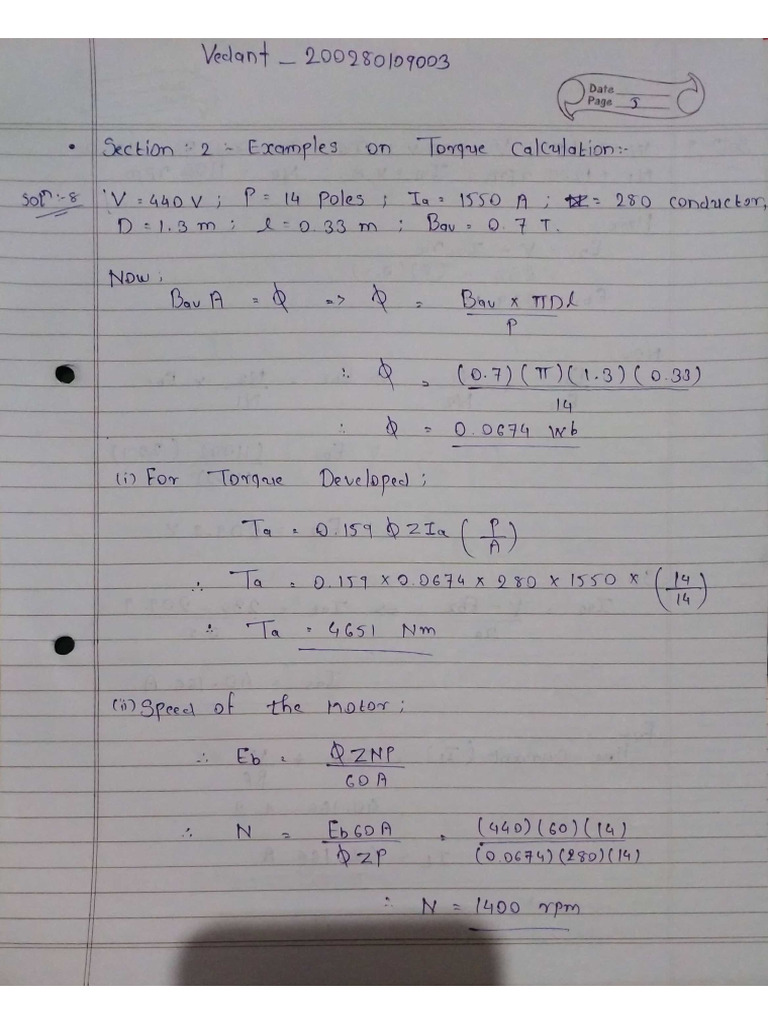 Vedant - 200280109003
Date
Page 5
• Section :- 2 :- Examples on Torque Calculation:-
Solⁿ:-8 V = 440 V ; P = 14 Poles ; Ia = 1550 A ; Z = 280 conductor,
D = 1.3 m ; l = 0.33 m ; Bav = 0.7 T.
Now;
Bav A = Φ => Φ = Bav × πDl / P
∴ Φ = (0.7)(π)(1.3)(0.33) / 14
∴ Φ = 0.0674 Wb
(i) For Torque Developed;
Ta = 0.159 ΦZIa (P/A)
∴ Ta = 0.159 × 0.0674 × 280 × 1550 × (14/14)
∴ Ta = 4651 Nm
(ii) Speed of the motor;
∴ Eb = ΦZNP / 60A
∴ N = Eb60A / ΦZP = (440)(60)(14) / (0.0674)(280)(14)
∴ N = 1400 rpm